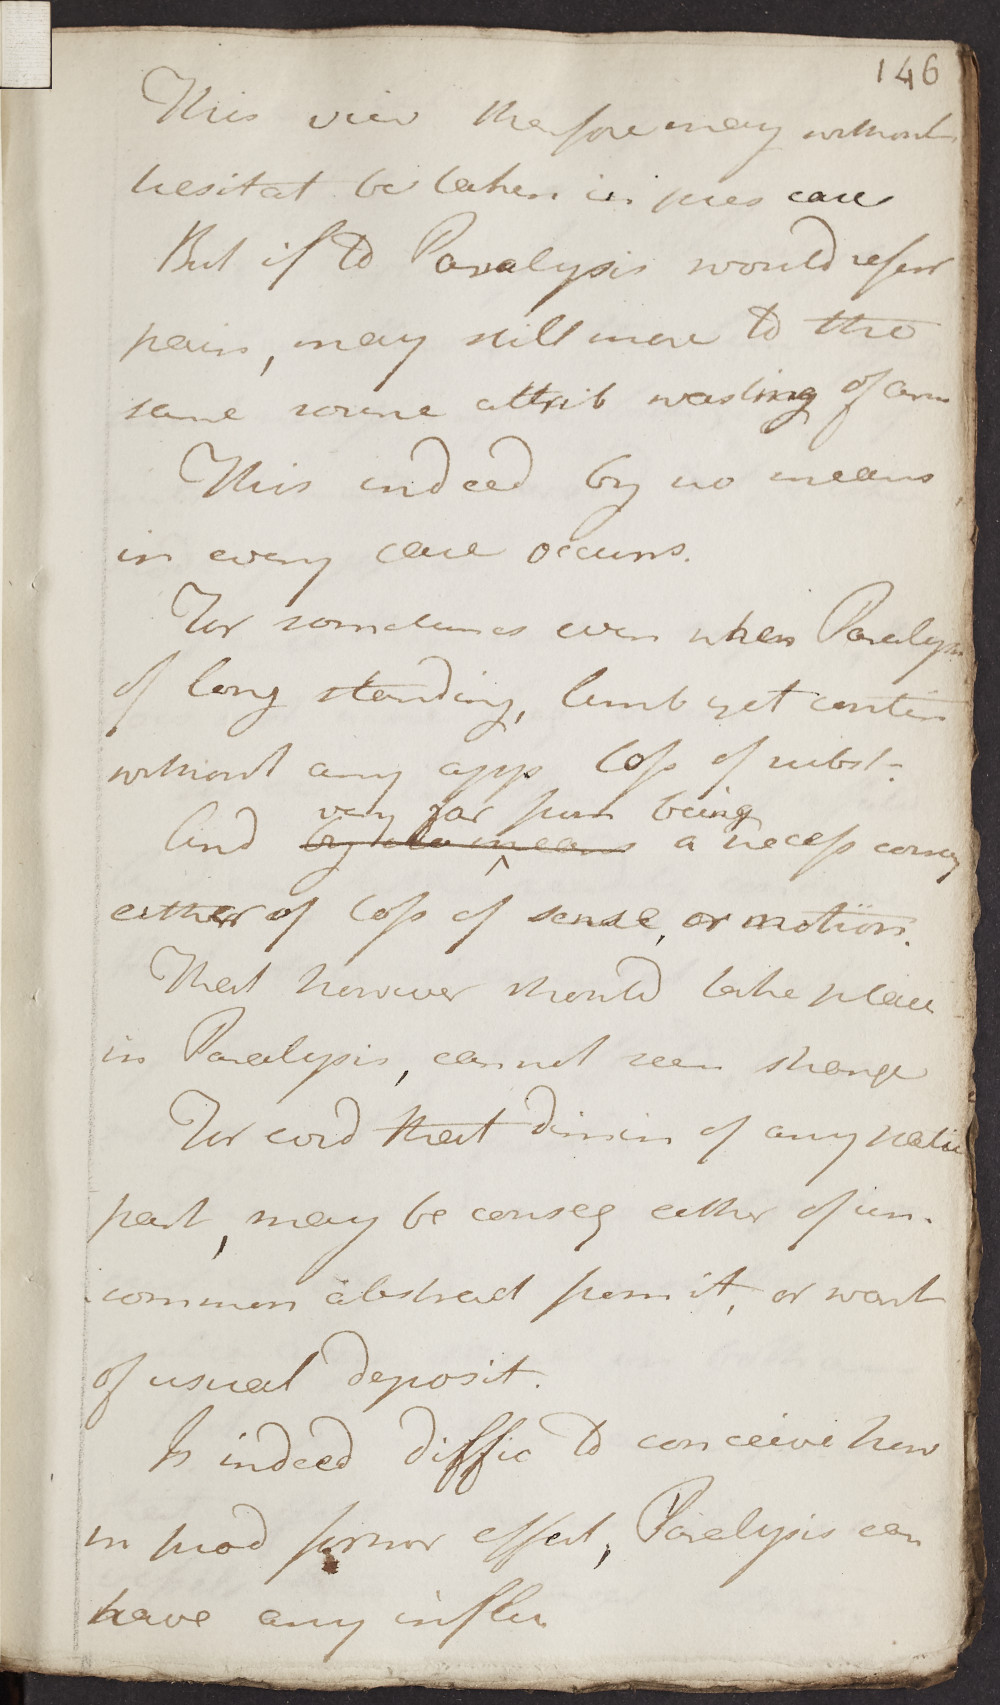 146
This view therefore may without
hesitat be taken in pres case
But if to Paralysis would refer
pain, may still more to the
same source attrib wasting of arm
This indeed by no means
in every case occurs.
For sometimes even when Paralys
of long standing, limb yet contin
without any app loss of subst.
very far from being
And by no means a necess conseq
either of loss of sense, or motion.
That however should take place
in Paralysis, cannot seem strange
For evid that dimin of any
part, may be conseq either of un-
common abstract from it, or want
of usual deposit.
Is indeed diffic to conceive how
in prod former effect, Paralysis can
have any influ